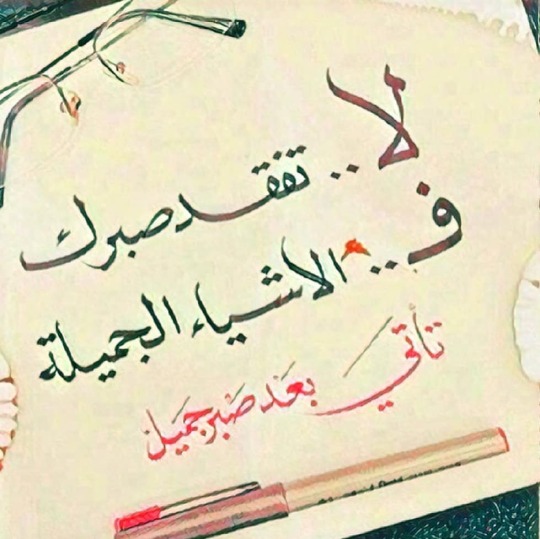 لا.. تفقد صبرك
ف.. الاشياء الجميلة
تأتي بعد صبر جميل